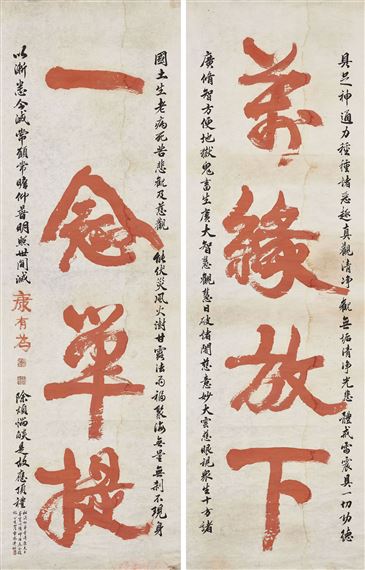 具足神通力種種諸惡趣真觀清淨觀無垢清淨光悲體戒雷震具一切功德
萬緣放下
廣脩智方便地獄鬼畜生廣大智慧觀慧日破諸闇慈意妙大雲慈眼視衆生十方諸
國土生老病死苦悲觀及慈觀能伏災風火澍甘露法雨福聚海無量無剎不現身
一念單提
以漸悉令滅常願常瞻仰普明照世間滅
康有為
除煩惱燄是故應頂禮